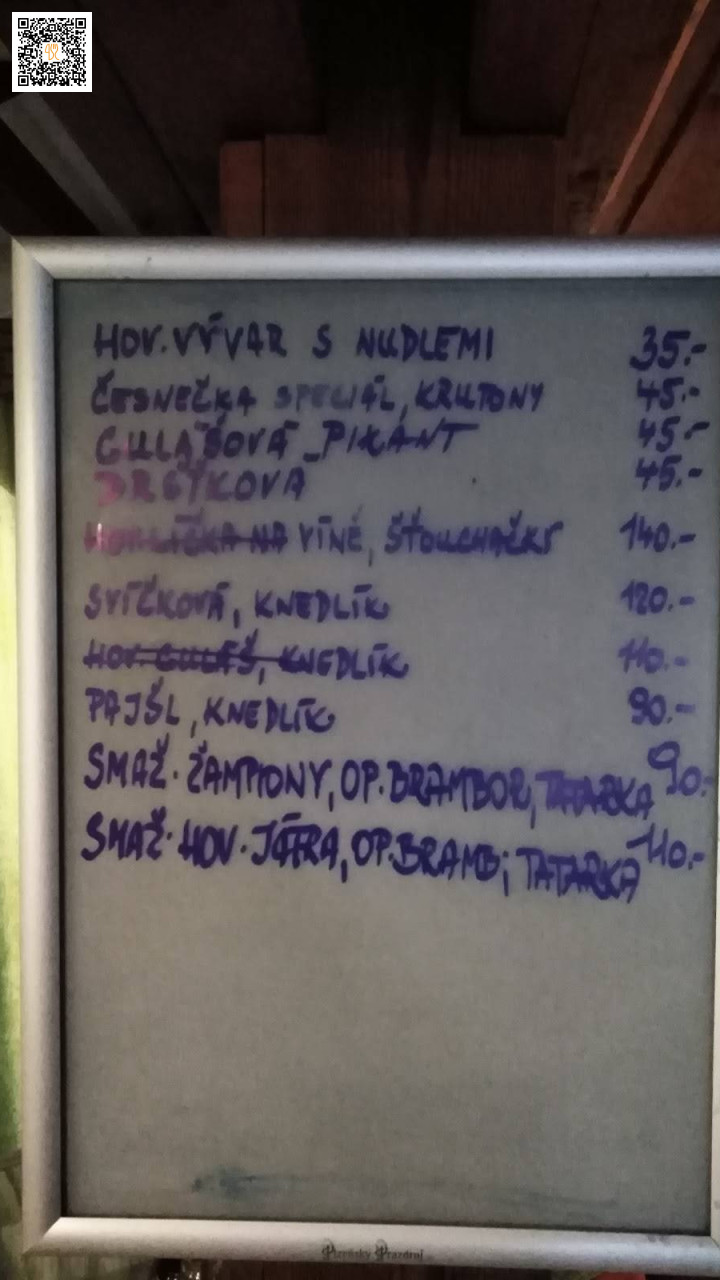 HOV. VÝVAR S NUDLEMI 35.-
ČESNEČKA SPECIÁL, KRUTONY 45.-
GULÁŠOVÁ PIKANT 45.-
DRŠŤKOVÁ 45.-
HOV. LÍČKA NA VÍNĚ, ŠŤOUCHAČKY 140.-
SVÍČKOVÁ, KNEDLÍK 120.-
HOV. GULÁŠ, KNEDLÍK 110.-
PAJŠL, KNEDLÍK 90.-
SMAŽ. ŽAMPIONY, OP. BRAMBOR, TATARKA 90.-
SMAŽ. HOV. JÁTRA, OP. BRAMB; TATARKA 110.-
Plzeňský Prazdroj